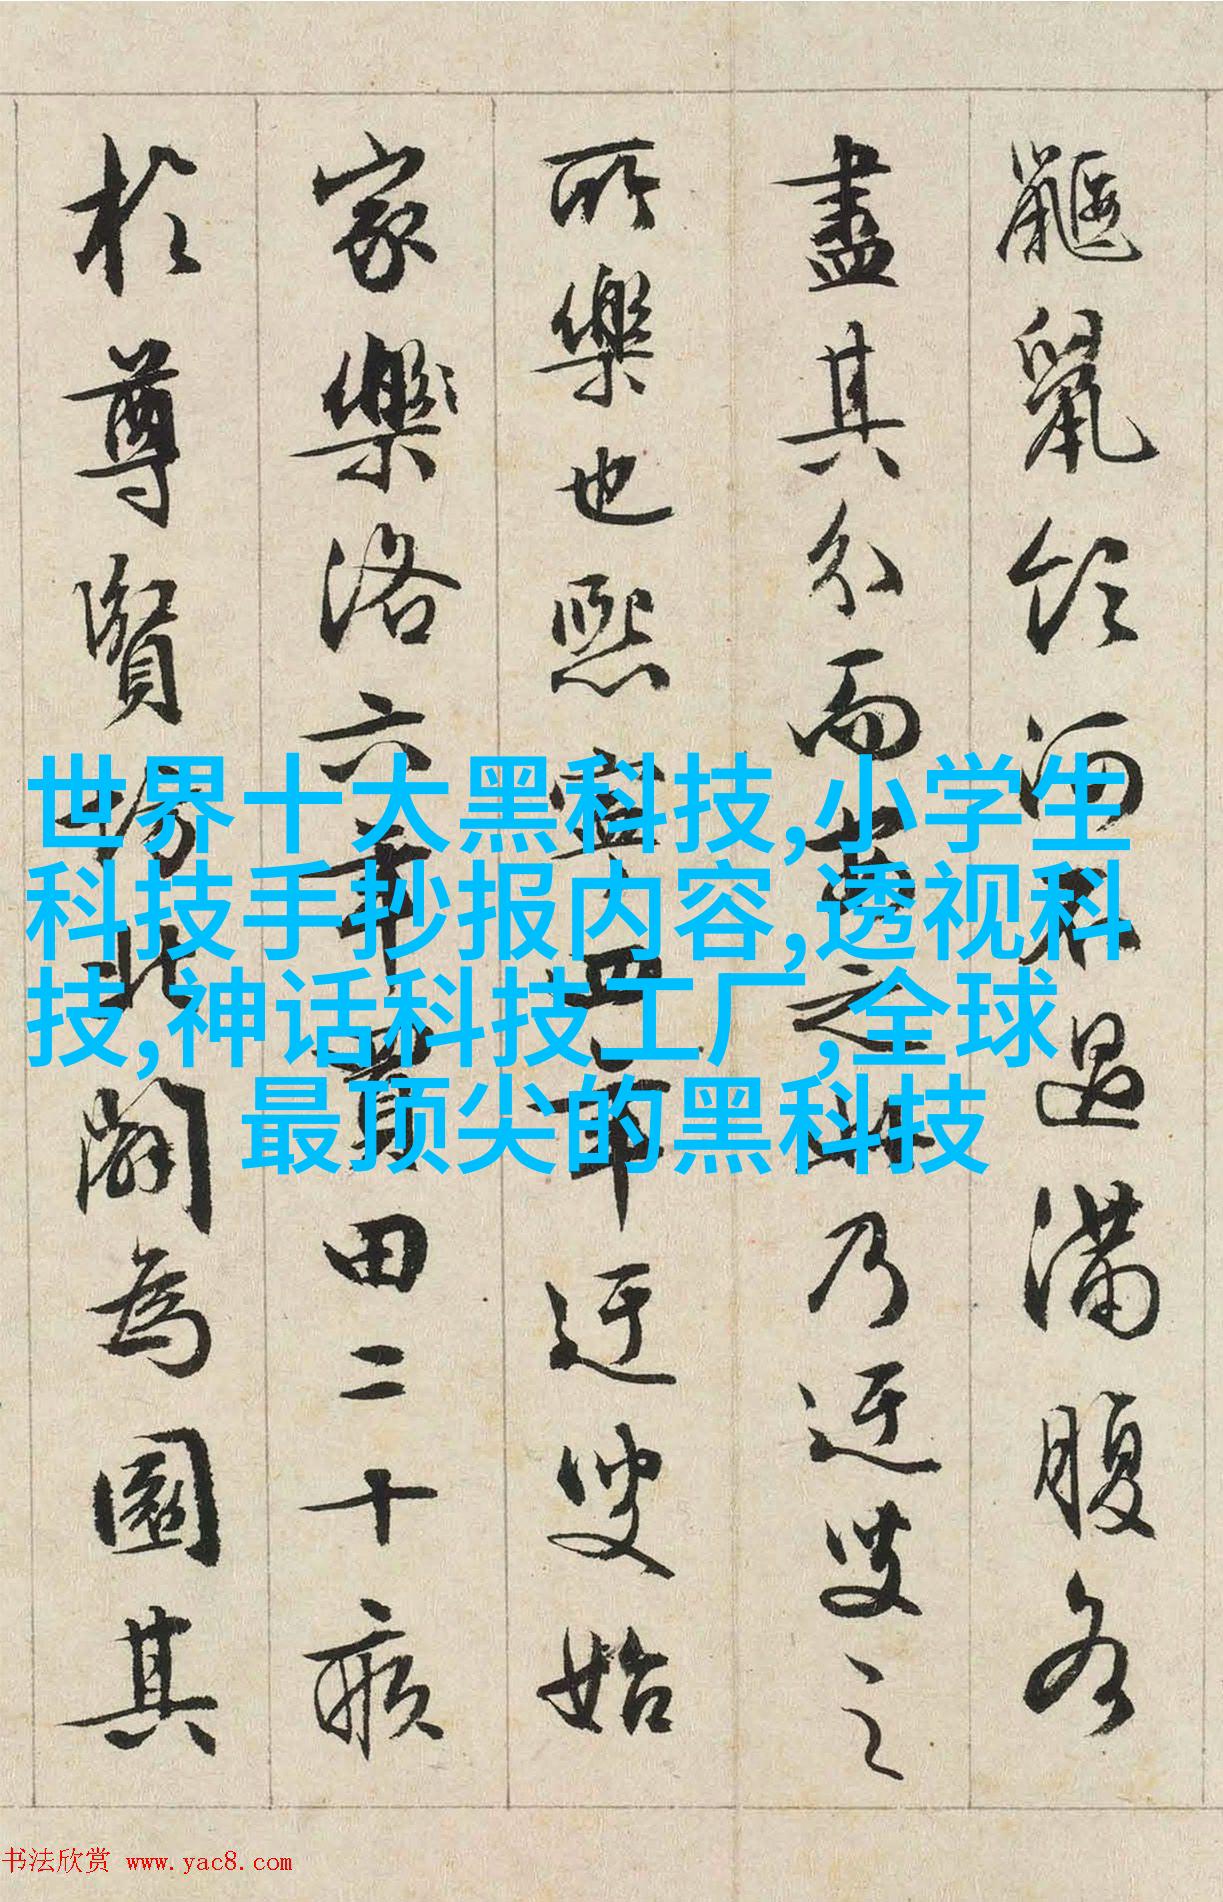 鼴鼠飲河不過滿腹各
盡其分而安之此乃迂叟之
所樂也熙寧四年迂叟始
家樂洛六年買田二十畝
於尊賢坊北闢為園其
世界十大黑科技,小学生
科技手抄报内容,透视科
技,神话科技工厂,全球
最顶尖的黑科技
书法欣赏 www.yac8.com